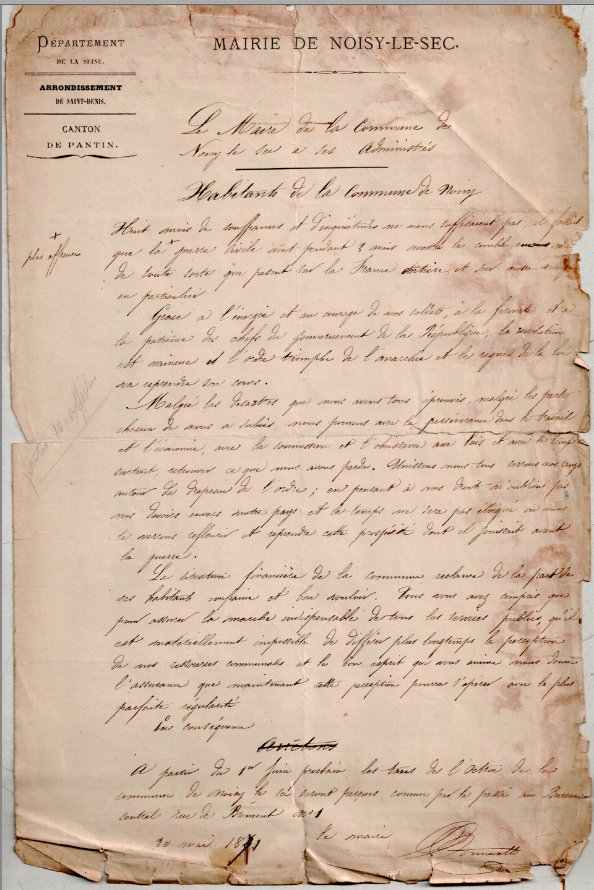 DÉPARTEMENT
DE LA SEINE.
ARRONDISSEMENT
DE SAINT-DENIS.
CANTON
DE PANTIN.
MAIRIE DE NOISY-LE-SEC.
Le Maire de la Commune de
Noisy le sec a ses Administrés
Habitants de la Commune de Noisy
Huit mois de souffrances et d'inquiétudes ne nous suffisaient pas, il fallait
+
plus affreuse
que la + guerre civile vint pendant 2 mois mettre le comble
de toute sorte que pesent sur la France entière, et sur notre
en particulier
Grace a l'énergie et au courage de nos soldats, à la fermeté et a
la patience des chefs du gouvernement de la République, la révolution
est vaincue et l'ordre triomphe de l'anarchie et le règne de la loi
va reprendre son cours.
Malgré les désastres que nous avons tous éprouvés, malgré les pertes
chacun de nous a subies, nous pouvons avec la persévérance dans le travail
et l'économie, avec la soumission et l'obeissance aux lois et avec le temps
surtout, retrouver ce que nous avons perdu. Unissons nous tous serrons nos rangs
autour du drapeau de l'ordre; en pensant à nos droits n'oublions pas
nos devoirs envers notre pays et le temps ne sera pas éloigné où nous
le verrons refleurir et reprendre cette prospérité dont il jouissait avant
la guerre.
La situation financière de la commune reclame de la part de
ses habitants confiance et bon vouloir. Vous avez compris que
pour assurer la marche indispensable de tous les services publics, qu'il
est materiellement impossible de différer plus longtemps la perception
de nos ressources communales et le bon esprit qui vous anime nous donne
l'assurance que maintenant cette perception pourra s'opérer avec la plus
parfaite régularité
En conséquence
Arrêtons
A partir du 1er Juin prochain les taxes de l'octroi de la
commune de Noisy le sec seront perçues comme par le passé au Bureau
central rue de Brément no 1
20 mai 1871
le maire